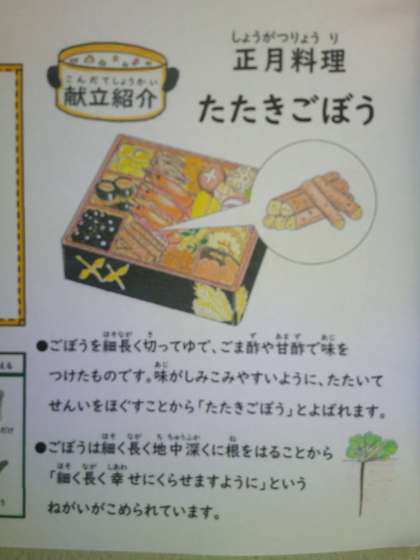 こんだてしょうかい
献立紹介
しょうがつりょうり
正月料理
たたきごぼう
●ごぼうを細長く切ってゆで、ごま酢や甘酢で味を
つけたものです。味がしみこみやすいように、たたいて
せんいをほぐすことから「たたきごぼう」とよばれます。
●ごぼうは細く長く地中深くに根をはることから
「細く長く幸せにくらせますように」という
ねがいがこめられています。